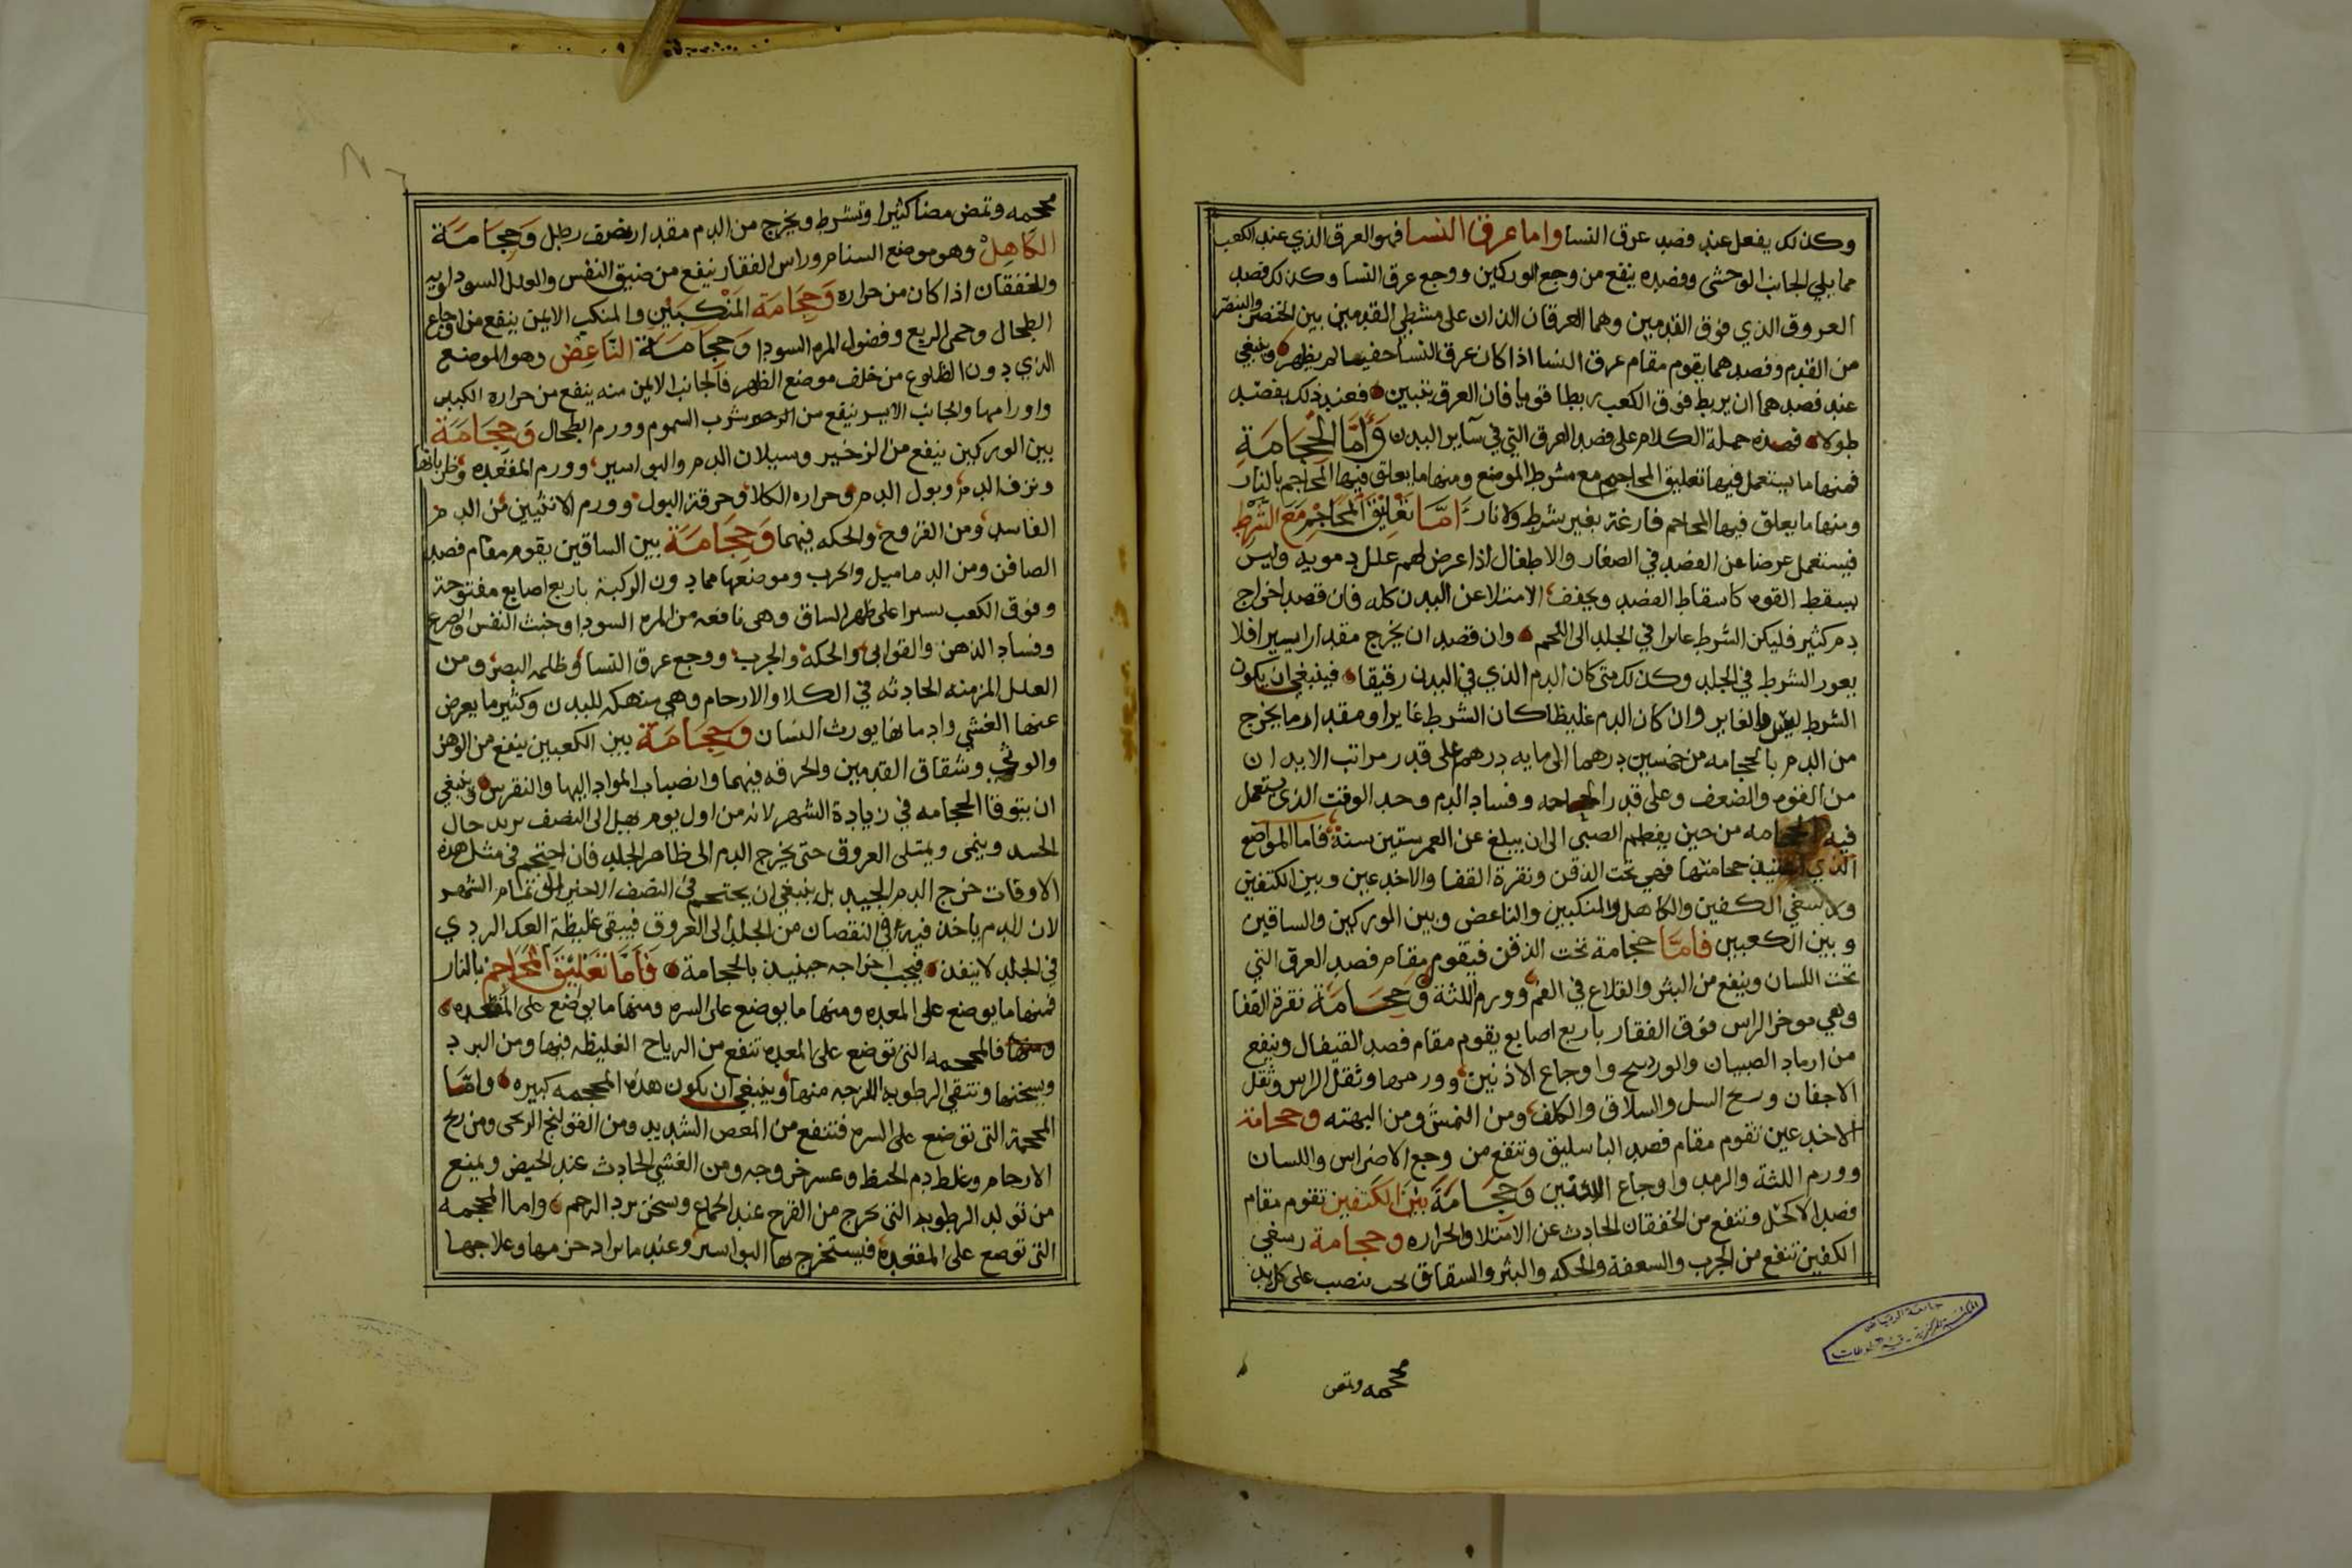 وكذلك يفعل عند فصد عرق النسا واما عرق النسا فهو العرق الذي عند الكعب
مما يلي الجانب الوحشى وفصده ينفع من وجع الوركين ووجع عرق النسا وكذلك فصد
العروق الذي فوق القدمين وهما العرقان الذان على مشطي القدمين بين الخنصر والبنصر
من القدم وفصدهما يقوم مقام عرق النسا اذا كان عرق النسا خفيا لم يظهر وينبغي
عند فصدهما ان يربط فوق الكعب ربطا قويا فان العرق يتبين فعند ذلك يفصد
طولا فهذه جملة الكلام على فصد العرق التي في ساير البدن وَأَمَّا الْحِجَامَةِ
فمنها ما يستعمل فيها تعليق المحاجم مع مشرط الموضع ومنها ما يعلق فيها المحاجم بالنار
ومنها ما يعلق فيها المحاجم فارغة بغير شرط ولا نار اَمَّا تَعْلِيْقَ الْمَحَاجِمِ مَعَ الشَّرْطِ
فيستعمل عوضا عن الفصد في الصغار والاطفال اذا عرض لهم علل دمويه وليس
يسقط القوه كاسقاط الفصد ويخفف الامتلا عن البدن كله فان قصد اخراج
دم كثير فليكن الشرط غايرا في الجلد الى اللحم وان قصد ان يخرج مقدارا يسيرا فلا
يعور الشرط في الجلد وكذلك متى كان الدم الذي في البدن رقيقا فينبغي ان يكون
الشرط ليس بالغاير وان كان الدم غليظا كان الشرط غايرا ومقدار ما يخرج
من الدم بالحجامه من خمسين درهما الى مايه درهم على قدر مراتب الابدان
من القوه والضعف وعلى قدر الحاجه وفساد الدم وحد الوقت الذى يستعمل
فيه الحجامه من حين يفطم الصبى الى ان يبلغ عن العمر ستين سنة فاما المواضع
الذي حجامتها فهي تحت الذقن ونقرة القفا والاخدعين وبين الكتفين
ولا رسغي الكفين والكاهل والمنكبين والناغض وبين الوركين والساقين
وبين الكعبين فامَّا حجامة تحت الذقن فيقوم مقام فصد العرق التي
تحت اللسان وينفع من البثر والقلاع في الفم وورم اللثة وَحِجَامَة نقرة القفا
وهي موخر الراس فوق الفقار باربع اصابع يقوم مقام فصد القيفال وينفع
من ارماد الصبيان والوردسح واوجاع الاذنين وورمها وثقل الراس وثقل
الاجفان وسح السل والسلاق والكلف ومن النمش ومن البهته وحجامة
الاخدعين تقوم مقام فصد الباسليق وتنفع من وجع الاضراس واللسان
وورم اللثة والرمد واوجاع الاذنين وَحِجَامَةَ بَيْنَ الْكَتَفَيْنِ تقوم مقام
فصد الاكحل وتنفع من الخفقان الحادث عن الامتلا والحراره وحجامة رسغي
الكفين تنفع من الجرب والسعفة والحكه والبثر والسقاق بحب ينصب على كل يد
محجمه وتمص
محجمه وتمص مصا كثيرا وتشرط ويخرج من الدم مقدار نصف رطل وَحِجَامَة
الكَاهِلْ وهو موضع السنام وراس الفقار ينفع من ضيق النفس والعلل السوداويه
والخفقان اذا كان من حراره وَحِجَامَة المَنْكَبَيْنِ والمنكب الايمن ينفع من اوجاع
الطحال وحمى الربع وفضول المره السودا وَحِجَامَة النَّاغِضِ وهو الموضع
الذي دون الظلوع من خلف موضع الظهر فالجانب الايمن منه ينفع من حراره الكبد
واورامها والجانب الايسر ينفع من الرحير شرب السموم وورم الطحال وَحِجَامَة
بين الوركين ينفع من الزخير وسيلان الدم والبواسير وورم المقعده وضرباتها
ونزف الدم وبول الدم وحراره الكلا وحرقة البول وورم الانثيين من الدم
الفاسد ومن القروح والحكه فيهما وَحِجَامَة بين الساقين يقوم مقام فصد
الصافن ومن الدماميل والجرب وموضعها مما دون الركبة باربع اصابع مفتوحة
وفوق الكعب يسيرا على ظهر الساق وهى نافعه من المره السودا وخبث النفس والصرع
وفساد الذهن والقوابى والحكة والجرب ووجع عرق النسا وظلمه البصر ومن
العلل المزمنه الحادثه في الكلا والارحام وهي منهكه للبدن وكثير ما يعرض
عنها الغشي وادمانها يورث النسان وَحِجَامَة بين الكعبين ينفع من الوهن
والوثي وشقاق القدمين والحرقه فيهما وانصباب المواد اليها والنقرس وينبغي
ان يتوقا الحجامه في زيادة الشهر لانه من اول يوم يهل الى النصف يريد حال
الجسد وينمى ويمتلى العروق حتى يخرج الدم الى ظاهر الجلد فان احتجم في مثل هذه
الاوقات خرج الدم الجيد بل ينبغي ان يحتجم في النصف الاخير الى تمام الشهر
لان الدم ياخذ فيه في النقصان من الجلد الى العروق فيبقى غليظة العكر الردي
في الجلد لا ينفذ فيجب اخراجه حينيذ بالحجامة فَاَمَّا تَعْلِيْقَ الْمَحَاجِمِ بالنار
فمنها ما يوضع على المعده ومنها ما يوضع على السره ومنها ما يوضع على المقعده
ومنها فالمحجمه التى توضع على المعده تنفع من الرياح الغليظه فيها ومن البرد
ويسخنها وتنقي الرطوبه اللزجه منها وينبغي ان يكون هذه المحجمه كبيره وامَّا
المحجمة التى توضع على السره فتنفع من المعص الشديد ومن القولنج الريحى ومن ريح
الارحام وغلط دم الحيظ وعسر خروجه ومن الغشي الحادث عند الحيض ويمنع
من تولد الرطوبه التى تخرج من الفرج عند الجماع ويسخن برد الرحم واما المحجمه
التى توضع على المقعده فيستخرج بها البواسير وعند ما يراد حزمها وعلاجها